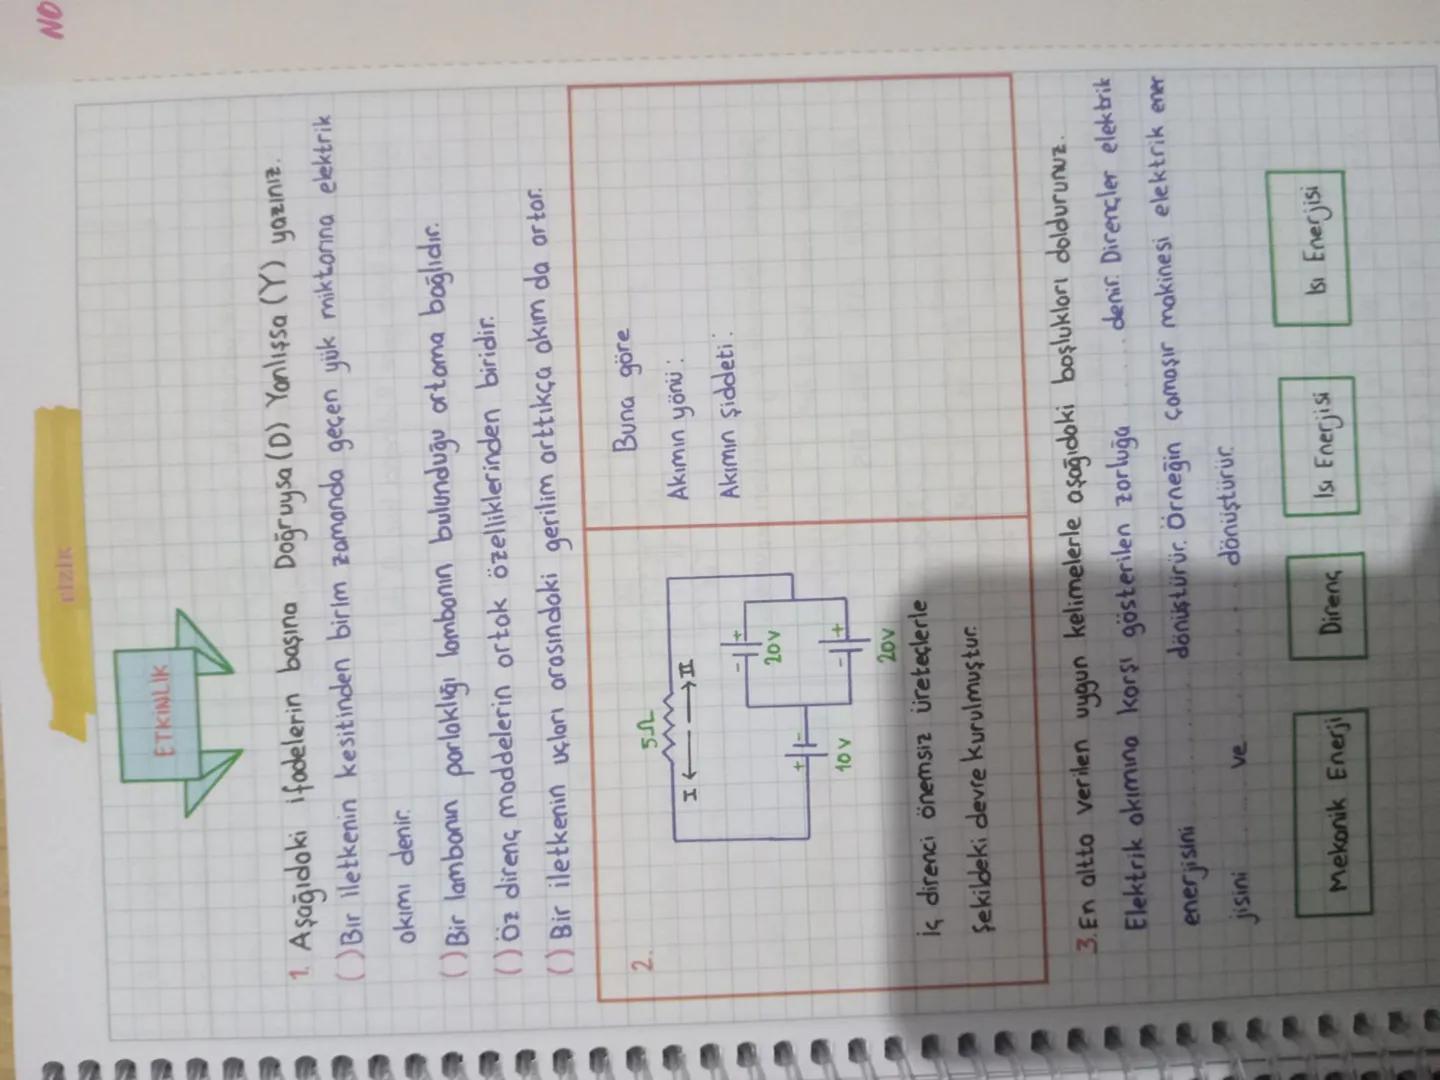 NO
FİZİK
ETKİNLİK
1. Aşağıdaki ifadelerin başına Doğruysa (D) Yanlışsa (Y) yazınız.
( ) Bir iletkenin kesitinden birim zamanda geçen yük miktarına elektrik
akımı denir.
( ) Bir lambanın parlaklığı lambanın bulunduğu ortama bağlıdır.
( ) Öz direnç maddelerin ortak özelliklerinden biridir.
( ) Bir iletkenin uçları arasındaki gerilim arttıkça akım da artar.
2.
5Ω
I ← → II
- +
20V
+ -
10V
- +
20V
İç direnci önemsiz üreteçlerle
şekildeki devre kurulmuştur.
Buna göre
Akımın yönü :
Akımın şiddeti :
3. En altta verilen uygun kelimelerle aşağıdaki boşlukları doldurunuz.
Elektrik akımına karşı gösterilen zorluğa ........ denir. Dirençler elektrik
enerjisini ........ dönüştürür. Örneğin çamaşır makinesi elektrik ener
jisini ........ ve ........ dönüştürür.
Mekanik Enerji
Direnç
Isı Enerjisi
Isı Enerjisi